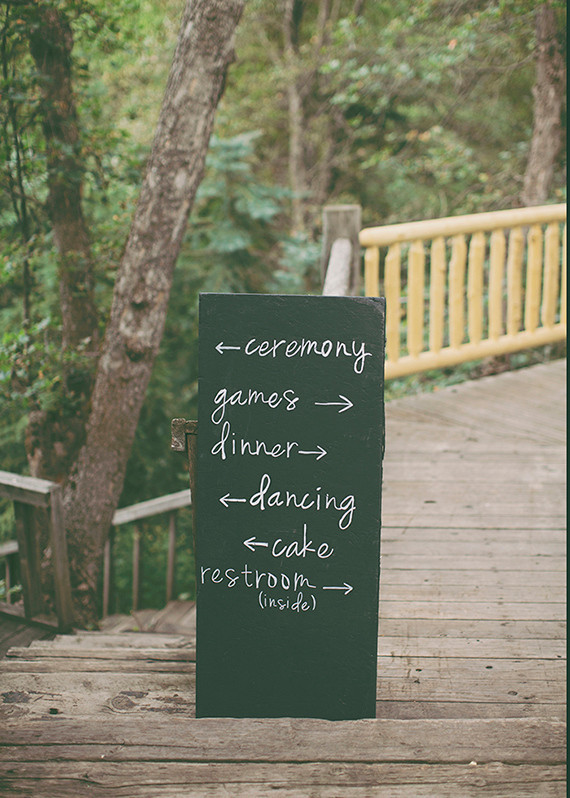 ← ceremony
games →
dinner →
← dancing
← cake
restroom →
(inside)